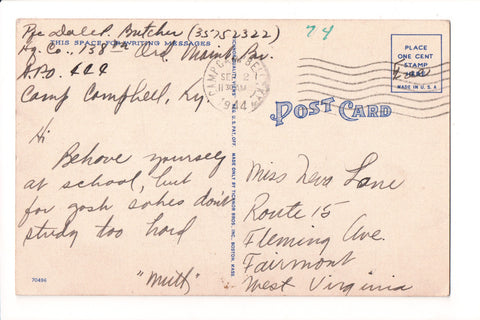 Pfc Dale P. Butcher (35752322)
THIS SPACE FOR WRITING MESSAGES
Hq. Co., 138th Ord. Maint. Bn.
A.P.O. 444
Camp Campbell, Ky.
Hi
Behove yourself
at school, but
for gosh sakes don't
study too hard
"Mutt"
70496
"TICHNOR QUALITY VIEWS," REG. U. S. PAT. OFF. MADE ONLY BY TICHNOR BROS., INC., BOSTON, MASS.
74
CAMP CAMPBELL, KY.
SEP 2
11 30 AM
1944
PLACE
ONE CENT
STAMP
HERE
MADE IN U.S.A
POST CARD
Miss Neva Lane
Route 15
Fleming Ave.
Fairmont
West Virginia